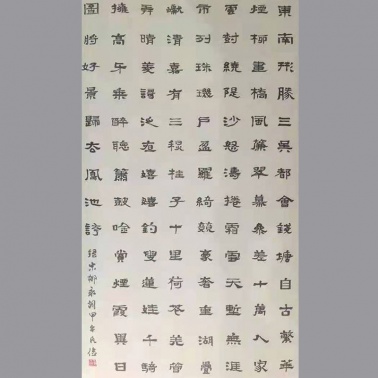 東南形勝三吳都會錢塘自古繁華
煙柳畫橋風簾翠幕參差十萬人家
雲樹繞隄沙怒濤捲霜雪天塹無涯
市列珠璣戶盈羅綺競豪奢重湖疊
巘清嘉有三秋桂子十里荷花羌管
弄晴菱謌泛夜嬉嬉釣叟蓮娃千騎
擁高牙乘醉聽簫鼓吟賞煙霞異日
圖將好景歸去鳳池誇
錄宋柳永詞甲午